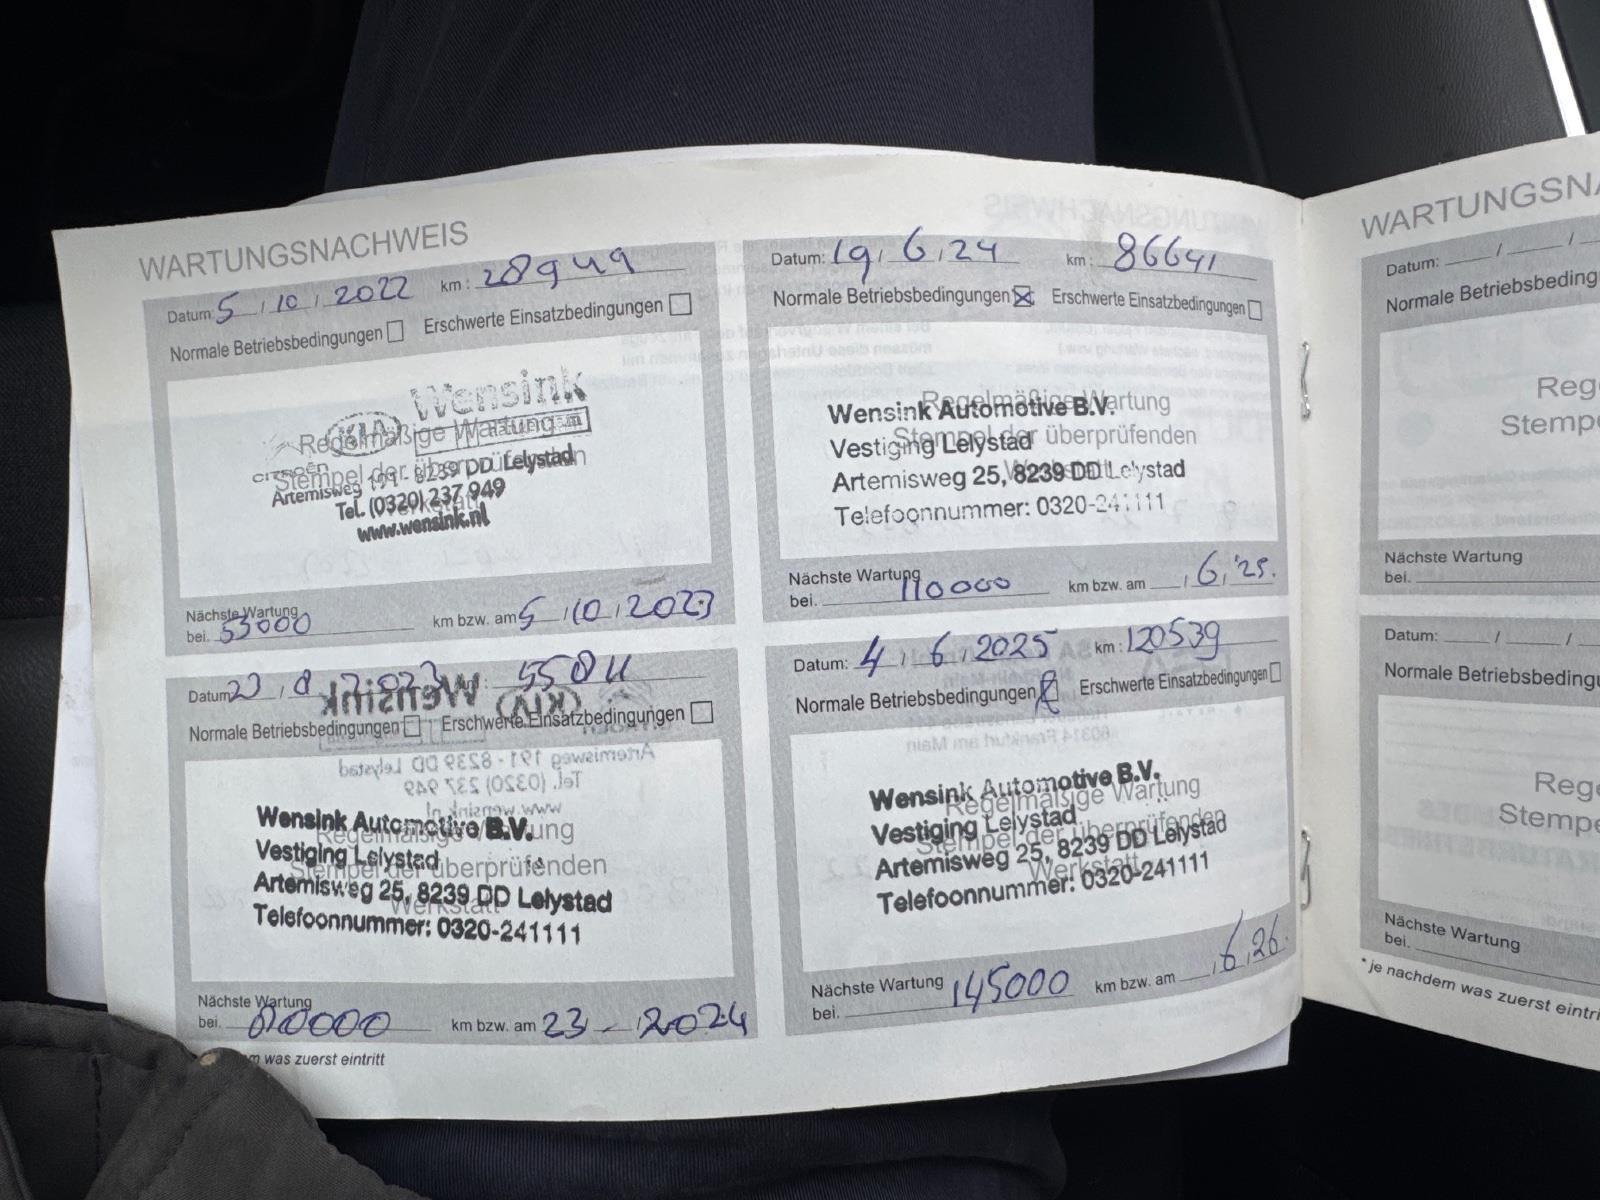 WARTUNGSNACHWEIS
Datum: 5 / 10 / 2022 km: 28949
Normale Betriebsbedingungen Erschwerte Einsatzbedingungen
Wensink
KIA
Regelmäßige Wartung
CITROËN
Stempel der überprüfenden
Artemisweg 191 - 8239 DD Lelystad
Tel. (0320) 237 949
Werkstatt
www.wensink.nl
Nächste Wartung
bei. 53000 km bzw. am 5 / 10 / 2023
Datum 8 2023
Normale Betriebsbedingungen Erschwerte Einsatzbedingungen
Wensink
KIA
Artemisweg 191 - 8239 DD Lelystad
Tel. (0320) 237 949
www.wensink.nl
Wensink Automotive B.V.
Regelmäßige Wartung
Vestiging Lelystad
Stempel der überprüfenden
Artemisweg 25, 8239 DD Lelystad
Werkstatt
Telefoonnummer: 0320-241111
Nächste Wartung
bei. 80000 km bzw. am 23 - 2024
was zuerst eintritt
Datum: 19 / 6 / 24 km: 86641
Normale Betriebsbedingungen Erschwerte Einsatzbedingungen
Regelmäßige Wartung
Wensink Automotive B.V.
Stempel der überprüfenden
Vestiging Lelystad
Werkstatt
Artemisweg 25, 8239 DD Lelystad
Telefoonnummer: 0320-241111
Nächste Wartung
bei. 110000 km bzw. am / 6 / '25.
Datum: 4 / 6 / 2025 km: 120539
Normale Betriebsbedingungen Erschwerte Einsatzbedingungen
60314 Frankfurt am Main
Wensink Automotive B.V.
Regelmäßige Wartung
Vestiging Lelystad
Stempel der überprüfenden
Artemisweg 25, 8239 DD Lelystad
Werkstatt
Telefoonnummer: 0320-241111
Nächste Wartung
bei. 145000 km bzw. am / 6 / 26.
WARTUNGSNA
Datum: / /
Normale Betriebsbeding
Rege
Stempe
Nächste Wartung
bei.
Datum: / /
Normale Betriebsbedingu
Rege
Stempe
Nächste Wartung
bei.
* je nachdem was zuerst eintri